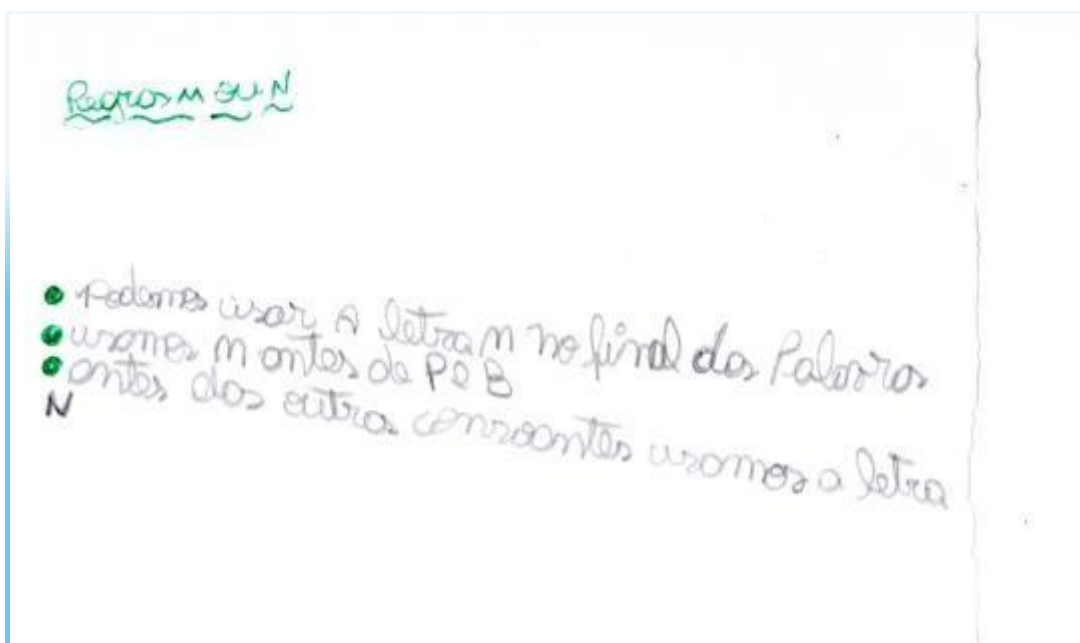 Regras M ou N
Podemos usar A letra m no final das Palavras
usamos m antes de P e B
antes das outras consoantes usamos a letra
N